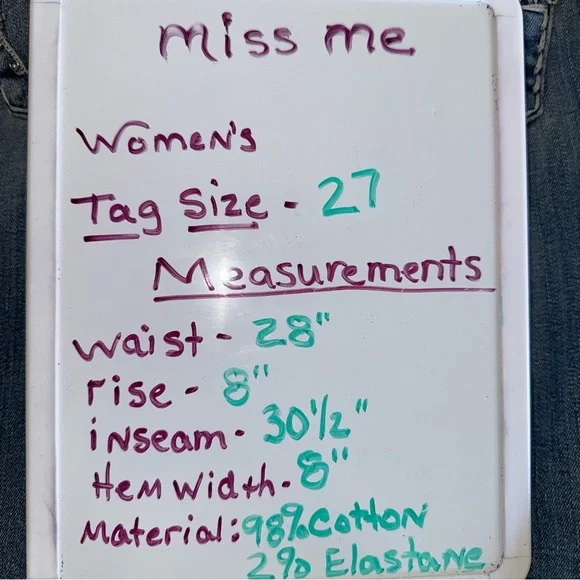 miss me
Women's
Tag Size - 27
Measurements
waist - 28"
rise - 8"
inseam - 30 1/2"
Hem Width - 8"
Material: 98% Cotton
2% Elastane